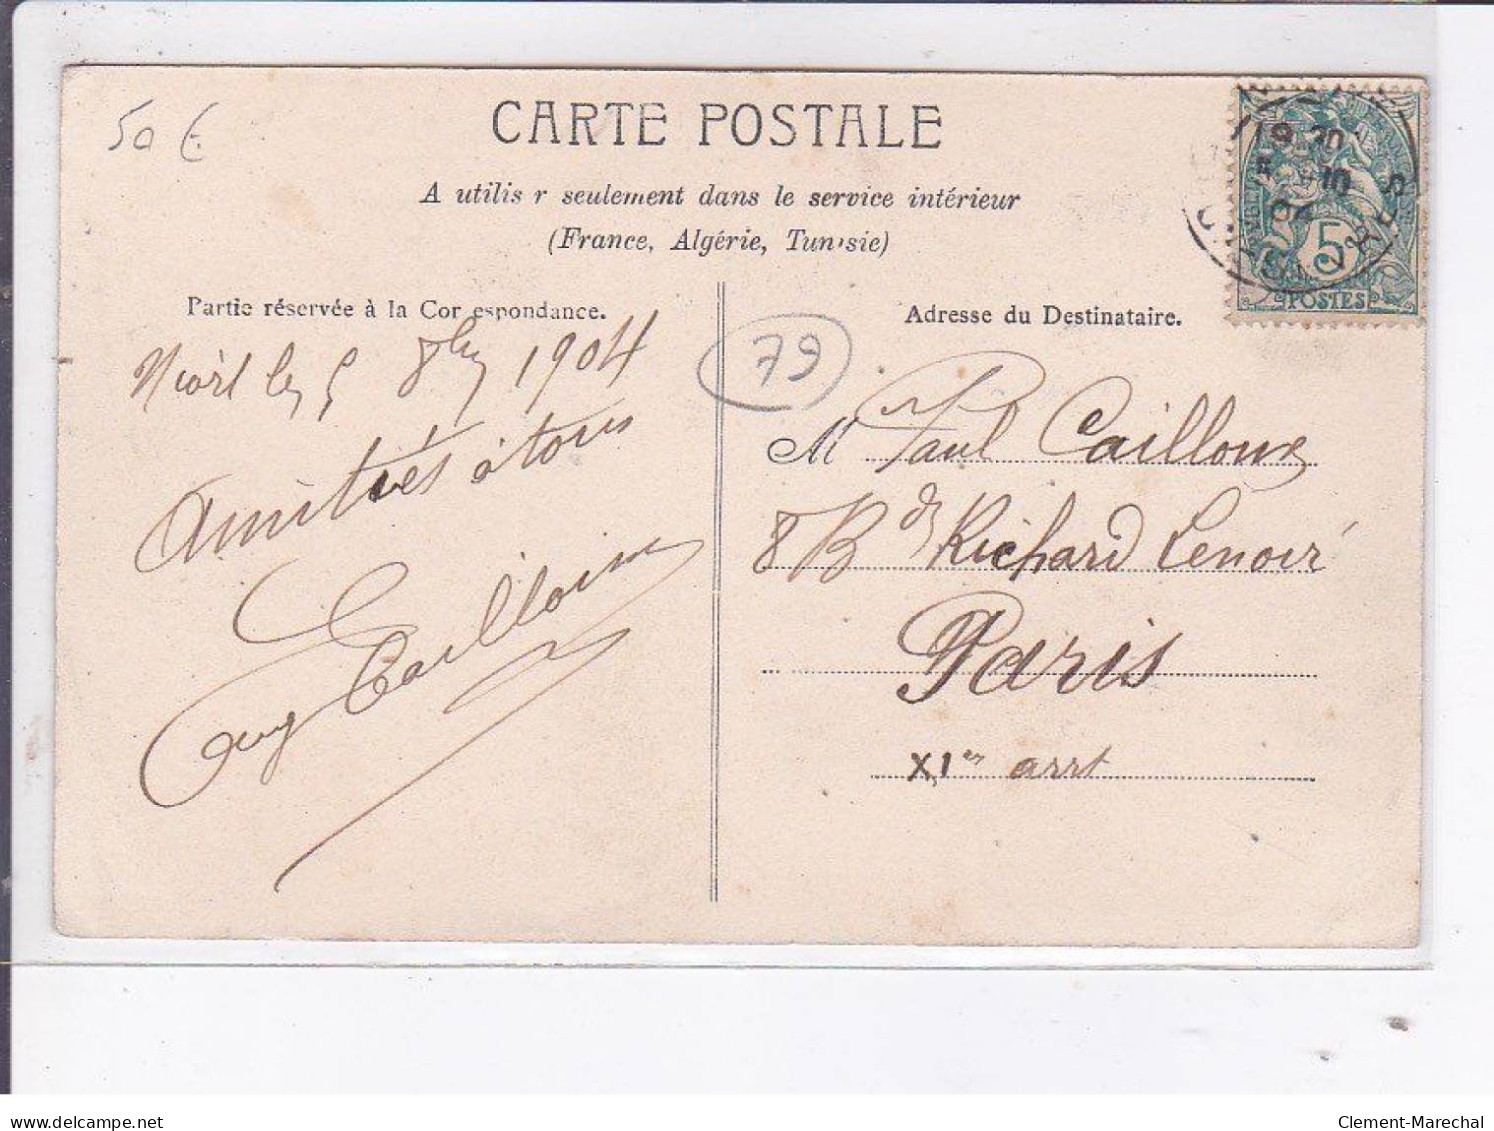 50 €
CARTE POSTALE
A utilis r seulement dans le service intérieur
(France, Algérie, Tunisie)
Partie réservée à la Cor espondance.
Niort le 5 8bre 1904
Amitiés à tous
Adresse du Destinataire.
79
M Paul Cailloux
8 Bd Richard Lenoir
Paris
XIer arrt
5
POSTES
delcampe.net
Clement-Marechal